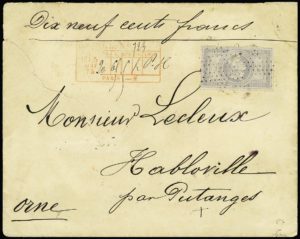 Dix neuf cents francs
Nº 724
PARIS
Monsieur Ledeux
Habloville
par Putanges
orne